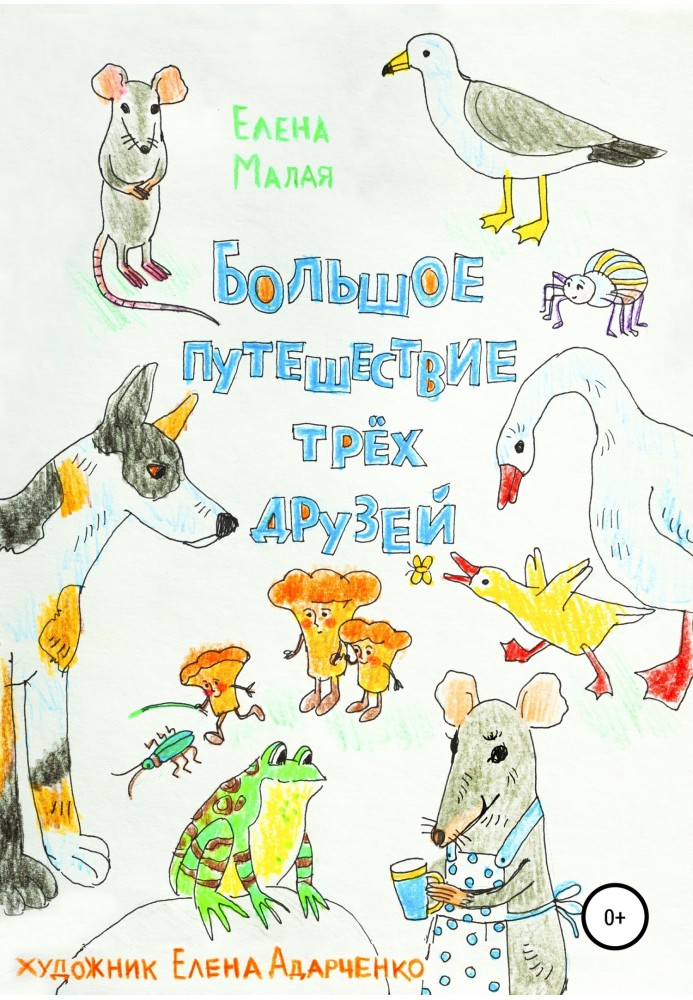 Елена
Малая
Большое
путешествие
трёх
друзей
0+
художник Елена Адарченко